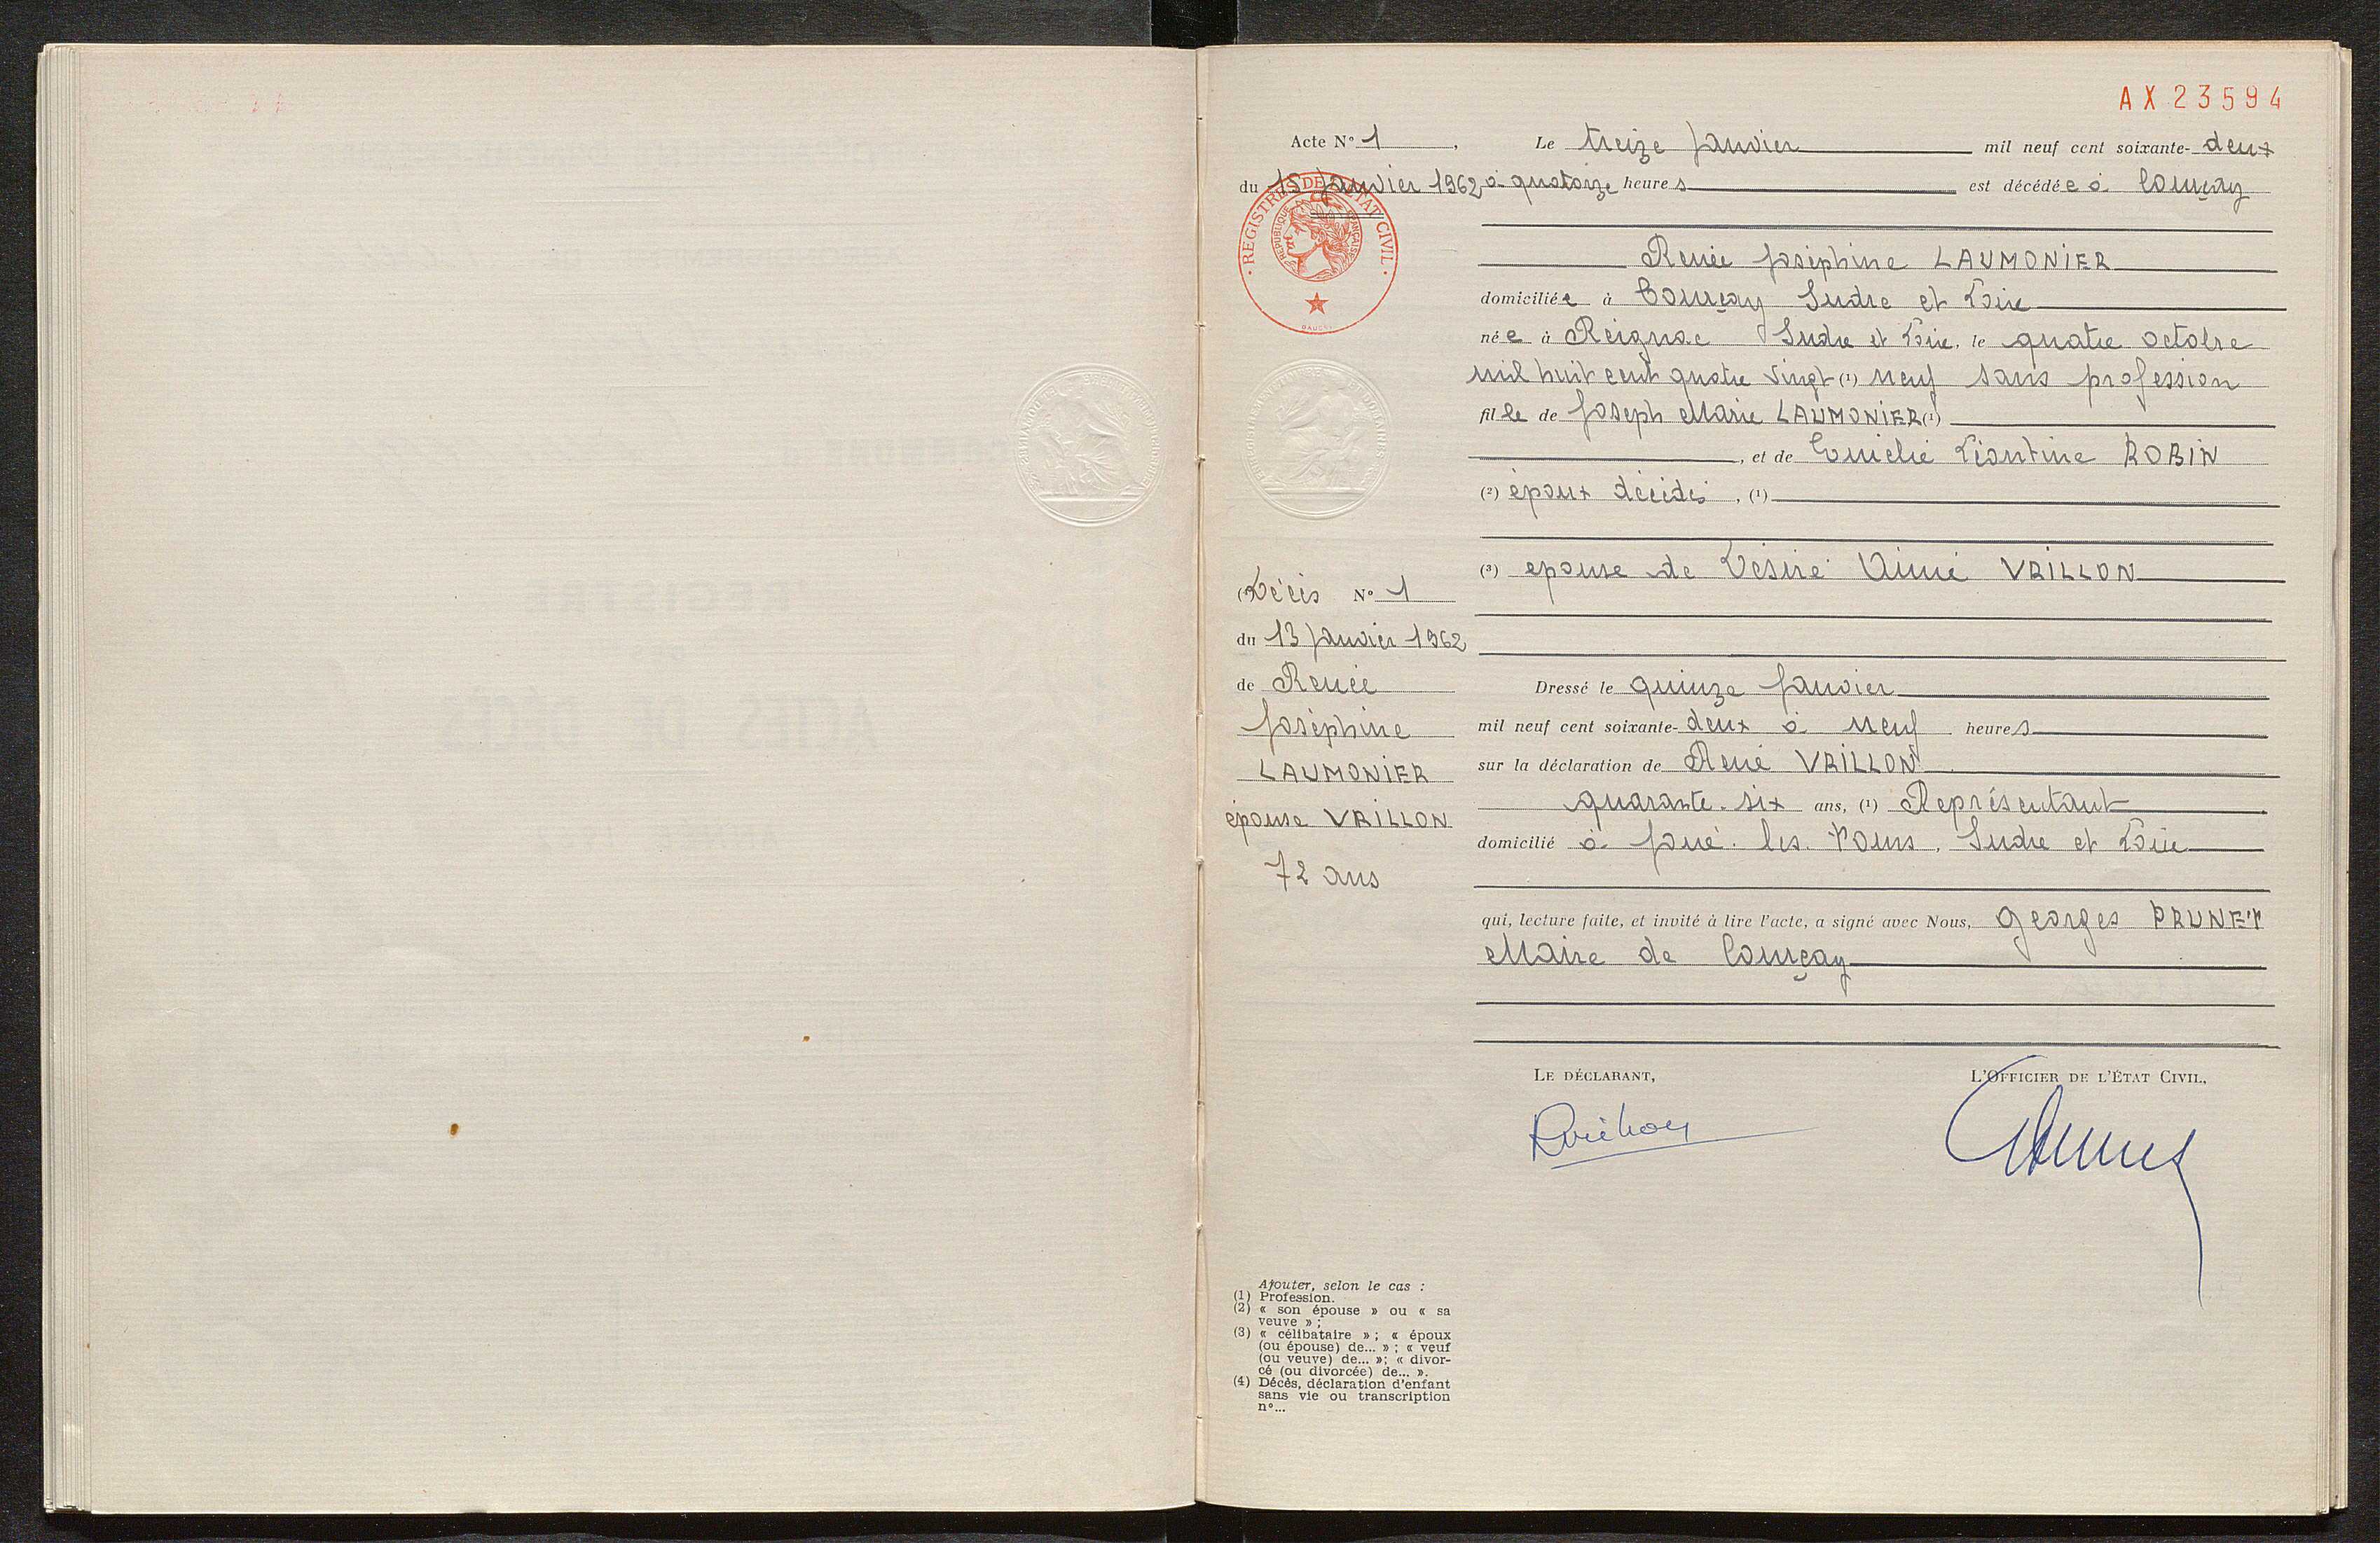 AX 23594
Acte N° 1, Le treize Janvier mil neuf cent soixante-deux
du 15 Janvier 1962 à quatorze heures est décédée à Courçay
REGISTRES DE L'ÉTAT CIVIL
RÉPUBLIQUE FRANÇAISE
Renée Joséphine LAUMONIER
domiciliée à Courçay Indre et Loire
née à Reignac Indre et Loire, le quatre octobre
mil huit cent quatre vingt (1) neuf sans profession
fille de Joseph Marie LAUMONIER (1)
, et de Emélie Léontine ROBIN
(2) époux décédés, (1)
(3) epouse de Désiré Aimé VRILLON
(4) Décès N° 1
du 13 Janvier 1962
de Renée
Joséphine
LAUMONIER
épouse VRILLON
72 ans
Dressé le quinze Janvier
mil neuf cent soixante-deux à neuf heures
sur la déclaration de René VRILLON
quarante-six ans, (1) Représentant
domicilié à Joué-les-Tours, Indre et Loire
qui, lecture faite, et invité à lire l'acte, a signé avec Nous, Georges PRUNET
Maire de Courçay
LE DÉCLARANT,
L'OFFICIER DE L'ÉTAT CIVIL,
Ajouter, selon le cas :
(1) Profession.
(2) « son épouse » ou « sa
veuve » ;
(3) « célibataire » ; « époux
(ou épouse) de... » ; « veuf
(ou veuve) de... »; « divor-
cé (ou divorcée) de... ».
(4) Décès, déclaration d'enfant
sans vie ou transcription
n°...